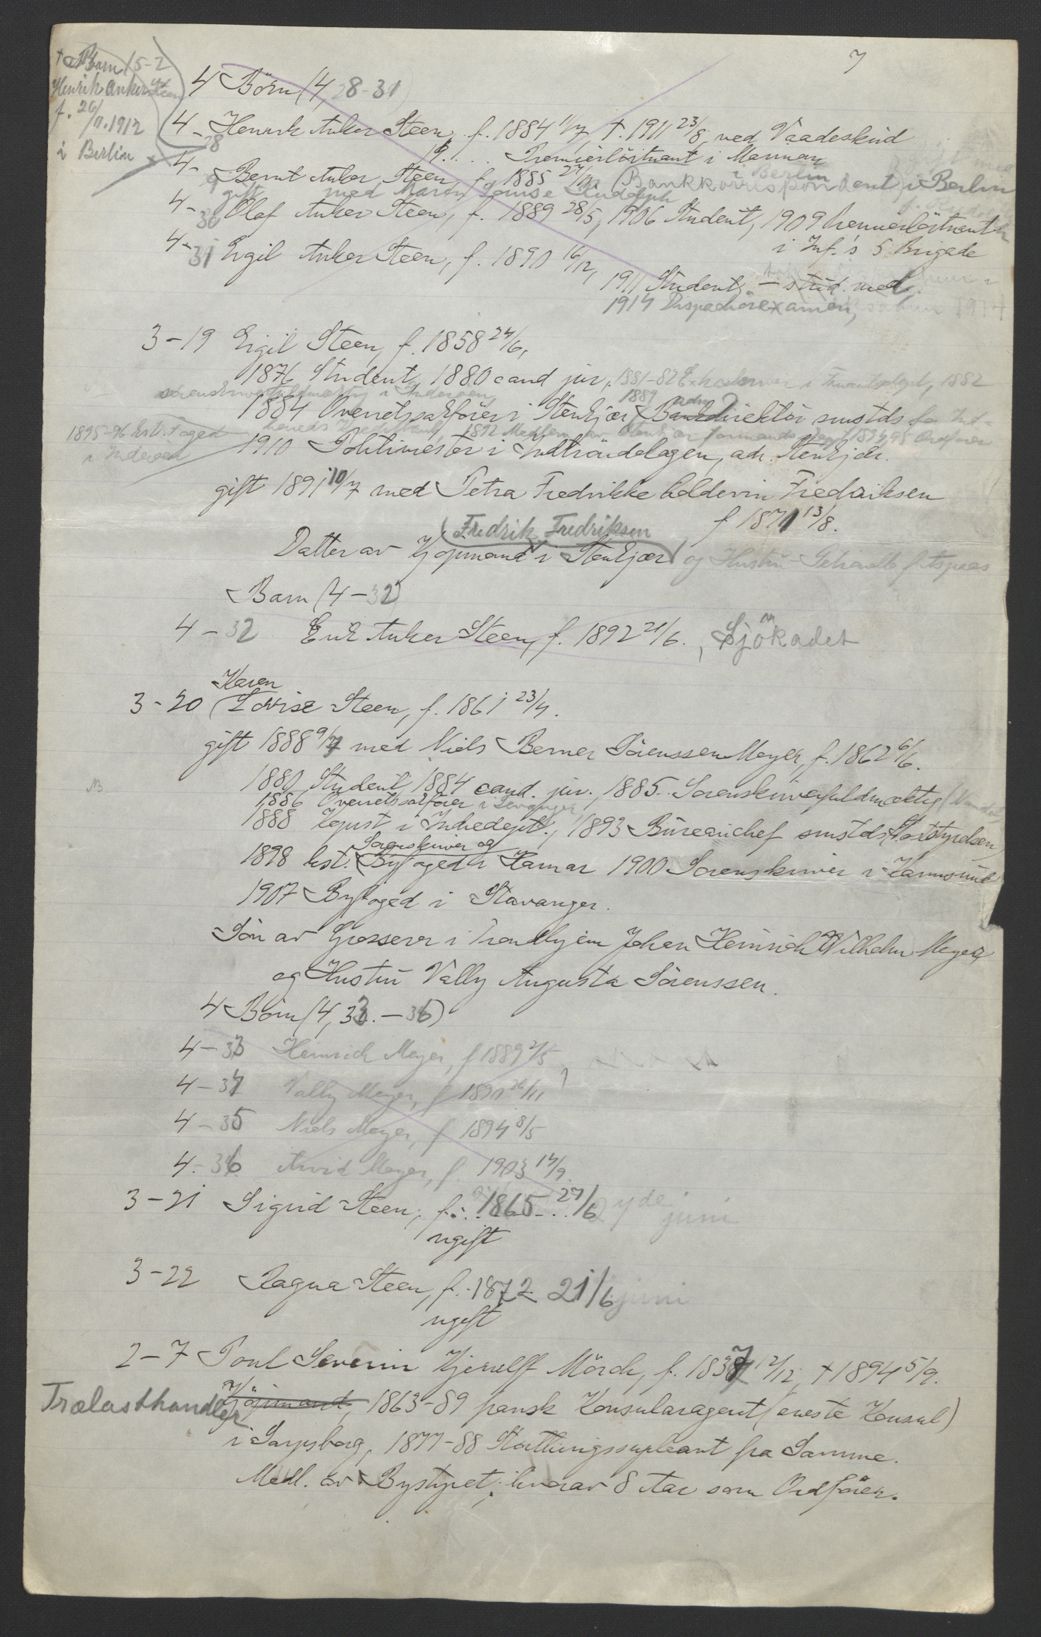 7
Barn 5-1
Henrik Anker Steen
f. 20/11.1912
i Berlin
4 Börn (4, 28-31)
4-28 Henrik Anker Steen, f. 1884 11/7, † 1911 23/8, ved Vaadeskud
Premierlöitnant i Marinen
4- Bernt Anker Steen f. 1885 Bankkorrespondent i Berlin
gift i Berlin med Louise Rudolph
4-30 Olaf Anker Steen, f. 1889 28/5, 1906 Student, 1909 Premierlöitnant
i Inf.'s 5 Brigade
4-31 Eigil Anker Steen, f. 1890 16/12,
1911 Student, – stud. med.
1914 Dispachörexamen,
3-19 Eigil Steen, f. 1858 24/6,
1876 Student, 1880 cand jur, 1881-82 i 1882
sorenskriverfuldmægtig i Inderøen
1884 Overretssakförer i Stenkjær, 1889 Bankdirektör smstds
1892 Medlem av Stenkjær formandskap, Ordförer
1895-96 kst. Foged
i Inderøen
1910 Politimester i Indtröndelagen, adr. Stenkjær.
gift 1891 10/7 med Petra Fredrikke Fredriksen
f 1871 13/8.
Fredrik Fredriksen
Datter av Kjöpmand i Stenkjær og Hustru
Barn (4-32)
4-32 Erik Anker Steen, f. 1892 21/6. , Sjökadet
Karen
3-20 Lovise Steen, f. 1861 23/4.
gift 1888 9/7 med Niels Berner Sörenssen Meyer, f. 1862 6/6.
1880 Student, 1884 cand. jur., 1885. Sorenskriverfuldmægtig
1886 Overretssakförer i Levanger
1888 Kopist i Indredept., 1893 Bureauchef smstds
Sorenskriver og
1898 kst. Byfoged i Hamar 1900 Sorenskriver i Karmsund
1907 Byfoged i Stavanger.
Sön av Grosserer i Trondhjem Johan Heinrich Wilhelm Meyer
og Hustru Vally Augusta Sörenssen.
4 Börn (4, 33. – 36)
4-33 Heinrich Meyer, f 1889 2/5
4-34 Vally Meyer, f 1890 26/11
4-35 Niels Meyer, f 1894 8/5
4-36 Arvid Meyer, f. 1903 17/9
3-21 Sigrid Steen, f. 1865 27/6 juni
ugift
3-22 Ragna Steen, f. 1872 21/6 juni
ugift
2-7 Poul Severin Hjerulff Mörch, f. 1837 12/12, † 1894 5/9.
Trælasthandler
Kjöpmand, 1863-89 spansk Konsularagent (eneste Konsul)
i Sarpsborg, 1877-88 Storthingssupleant fra Samme.
Medl. av Bystyret, hvorav 8 Aar som Ordförer.